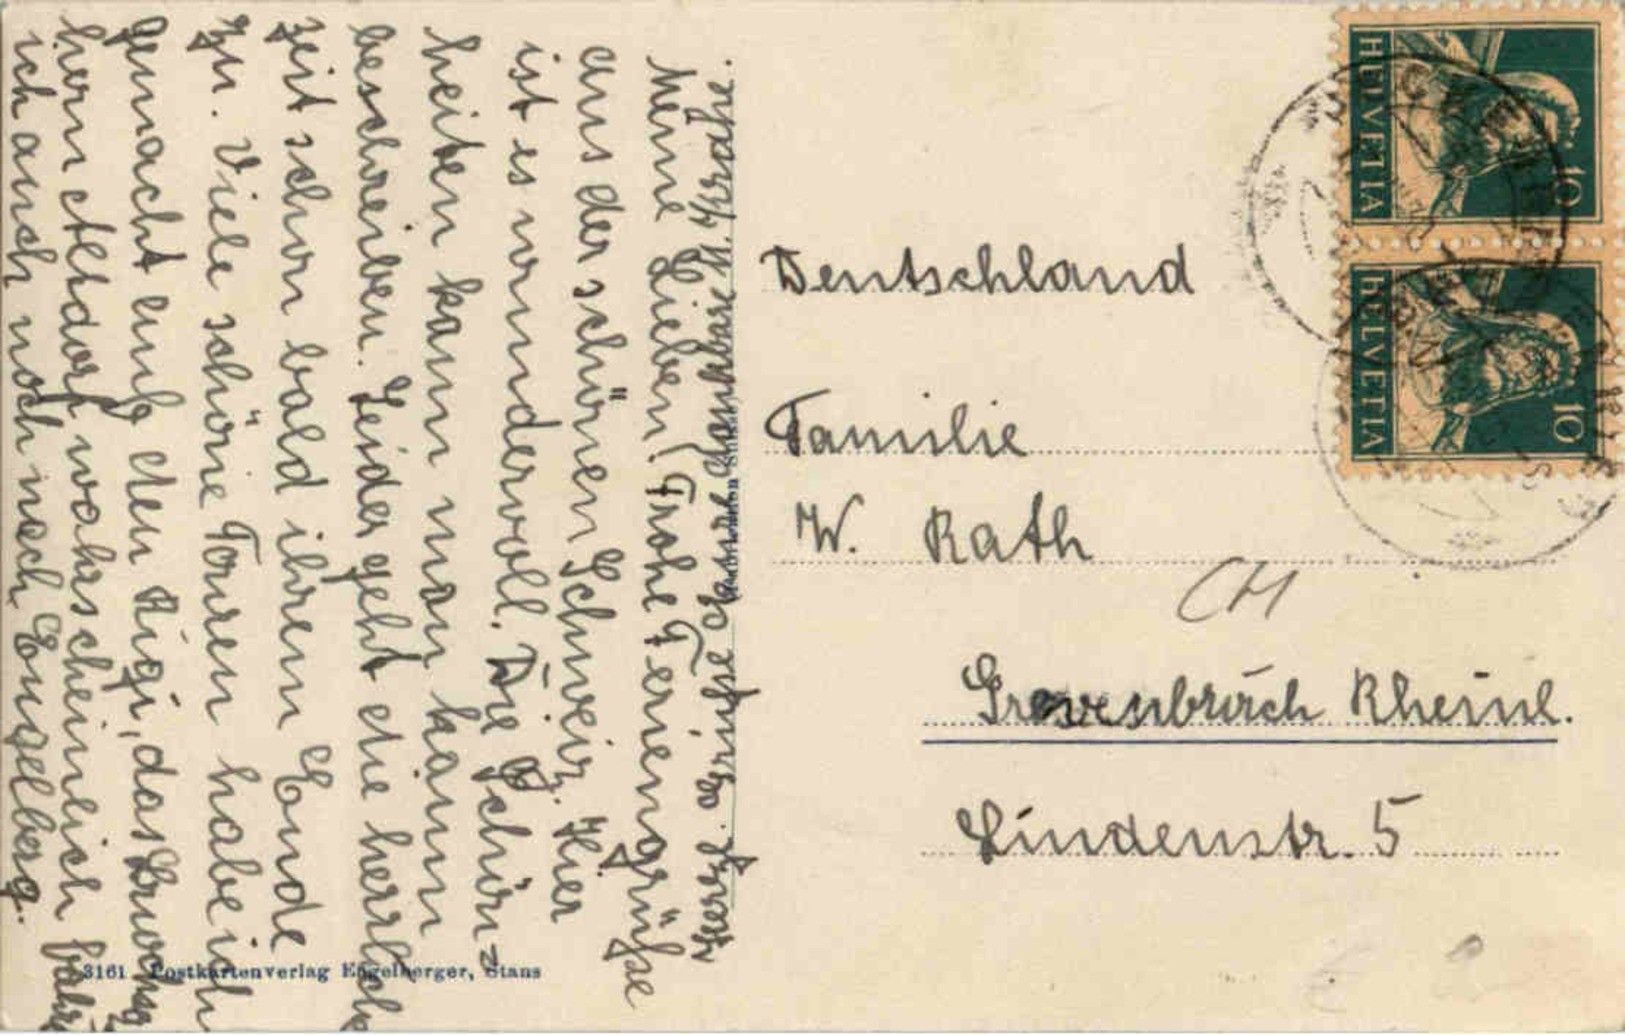 Meine Lieben! Frohe Feriengrüße
aus der schönen Schweiz. Hier
ist es wundervoll. Die Schön-
heiten kann man kaum
beschreiben. Leider geht die herrliche
Zeit schon bald ihrem Ende
zu. Viele schöne Touren habe ich
gemacht auf den Rigi, das
horn Altdorf wahrscheinlich fahre
ich auch noch nach Engelberg.
Herzl. Grüße
3161 Postkartenverlag Engelberger, Stans
HELVETIA 10
HELVETIA 10
Deutschland
Familie
W. Rath
CH
Grevenbroich Rheinl.
Lindenstr. 5